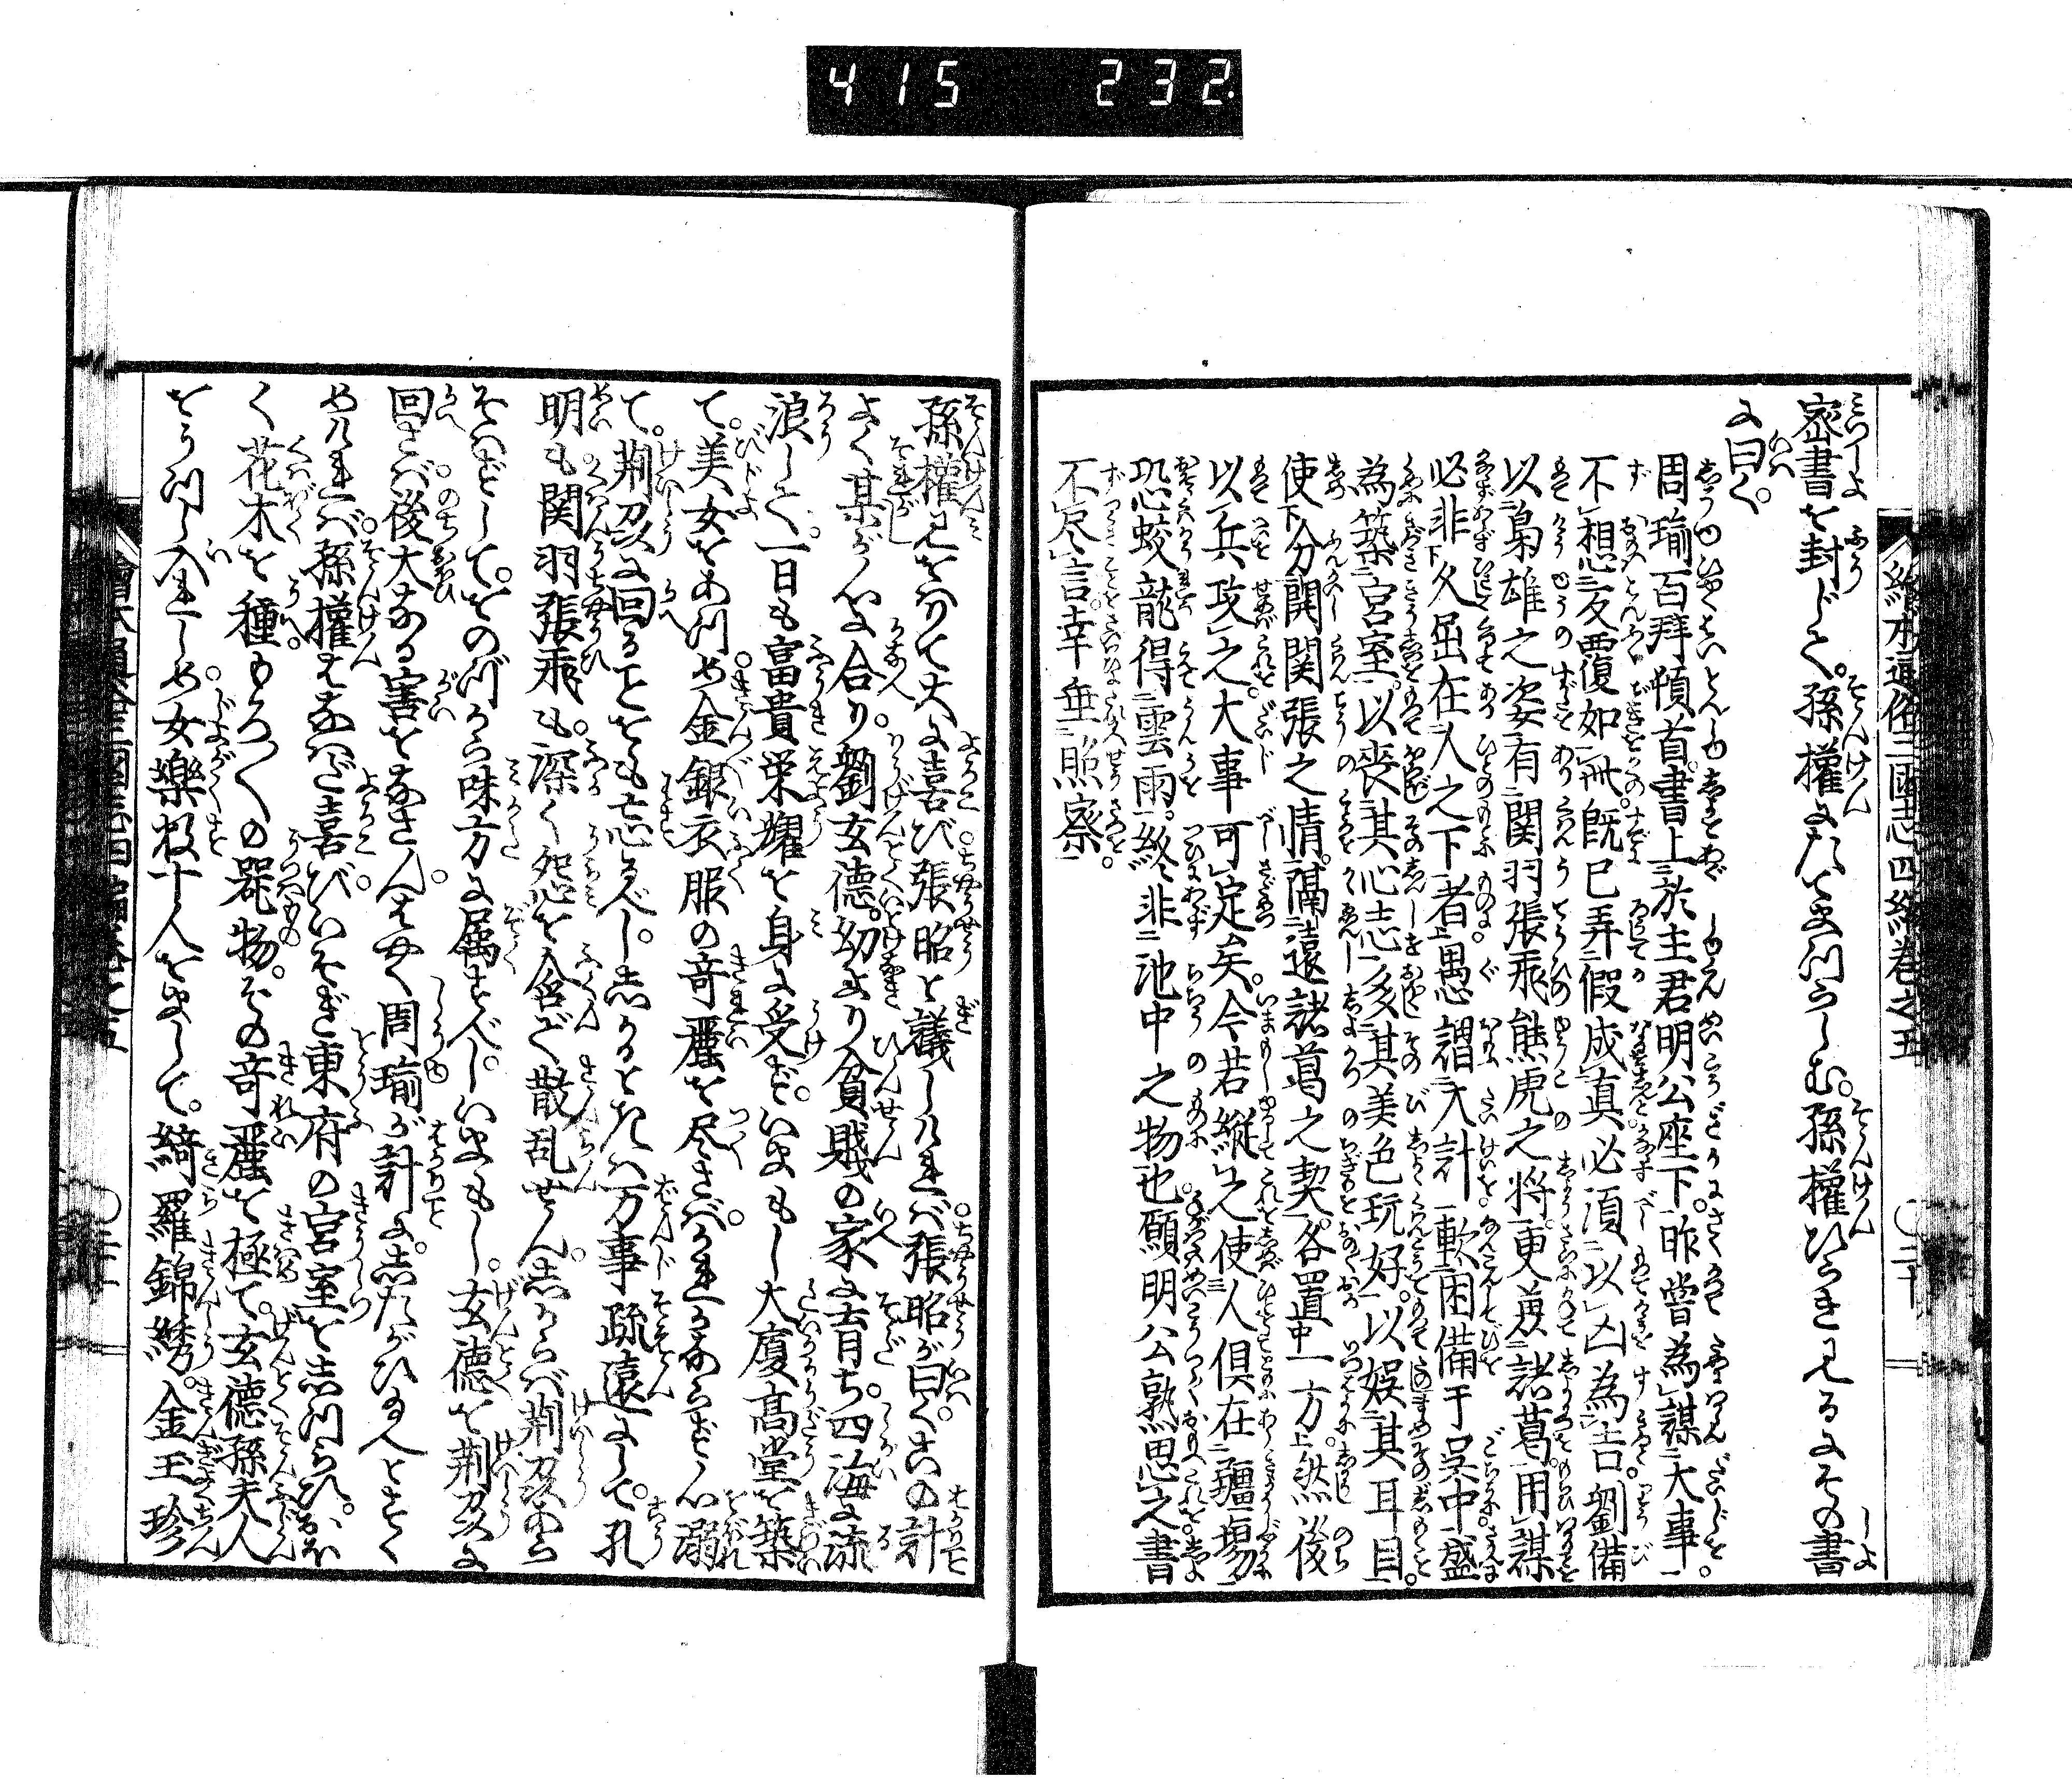 415 232
繪本通俗三國志四編巻之五 〇二十
密書を封じて。孫權にたてまつらしむ。孫權ひらき見るにその書
に曰く。
周瑜百拜頓首。書上於主君明公座下。昨嘗爲謀大事
不想反覆如此。既已弄假成真。必須以凶爲吉。劉備
以梟雄之姿。有関羽張飛熊虎之将。更兼諸葛用謀
必非久屈在人之下者。愚謂大計軟困備于呉中。盛
為築宮室。以喪其心志。多其美色玩好。以娯其耳目。
使分開関張之情。隔遠諸葛之契。各置一方。然後
以兵攻之。大事可定矣。今若縦之使人倶在疆場
恐蛟龍得雲雨。終非池中之物也。願明公孰思之書
不尽言。幸垂照察。
孫權見をはりて大に喜び張昭と議しければ張昭が曰く。この計
よく某が心に合り。劉玄德。幼より貧賤の家に育ち。四海に流
浪して。一日も富貴栄耀を身に受ず。いまもし大廈高堂を築
て。美女をあつめ。金銀衣服の奇麗を尽さば。かれかならず心溺
て。荆刕に回ることをも忘るべし。しかるときは万事疏遠にして。孔
明も関羽張飛も。深く怨を含で散乱せん。しからば荆刕おのづ
から味方に属すべし。いまもし。玄德を荆刕に
回さば。後大なる害をなさん。はやく周瑜が計にしたがひ玉へとすゝ
めければ。孫權はなはだ喜び。いそぎ東府の宮室をしつらひ。おほ
く花木を種。もろ〳〵の器物。その奇麗を極て。玄德孫夫人
をうつし入れしめ。女樂数十人をまして。綺羅錦綉。金玉珍